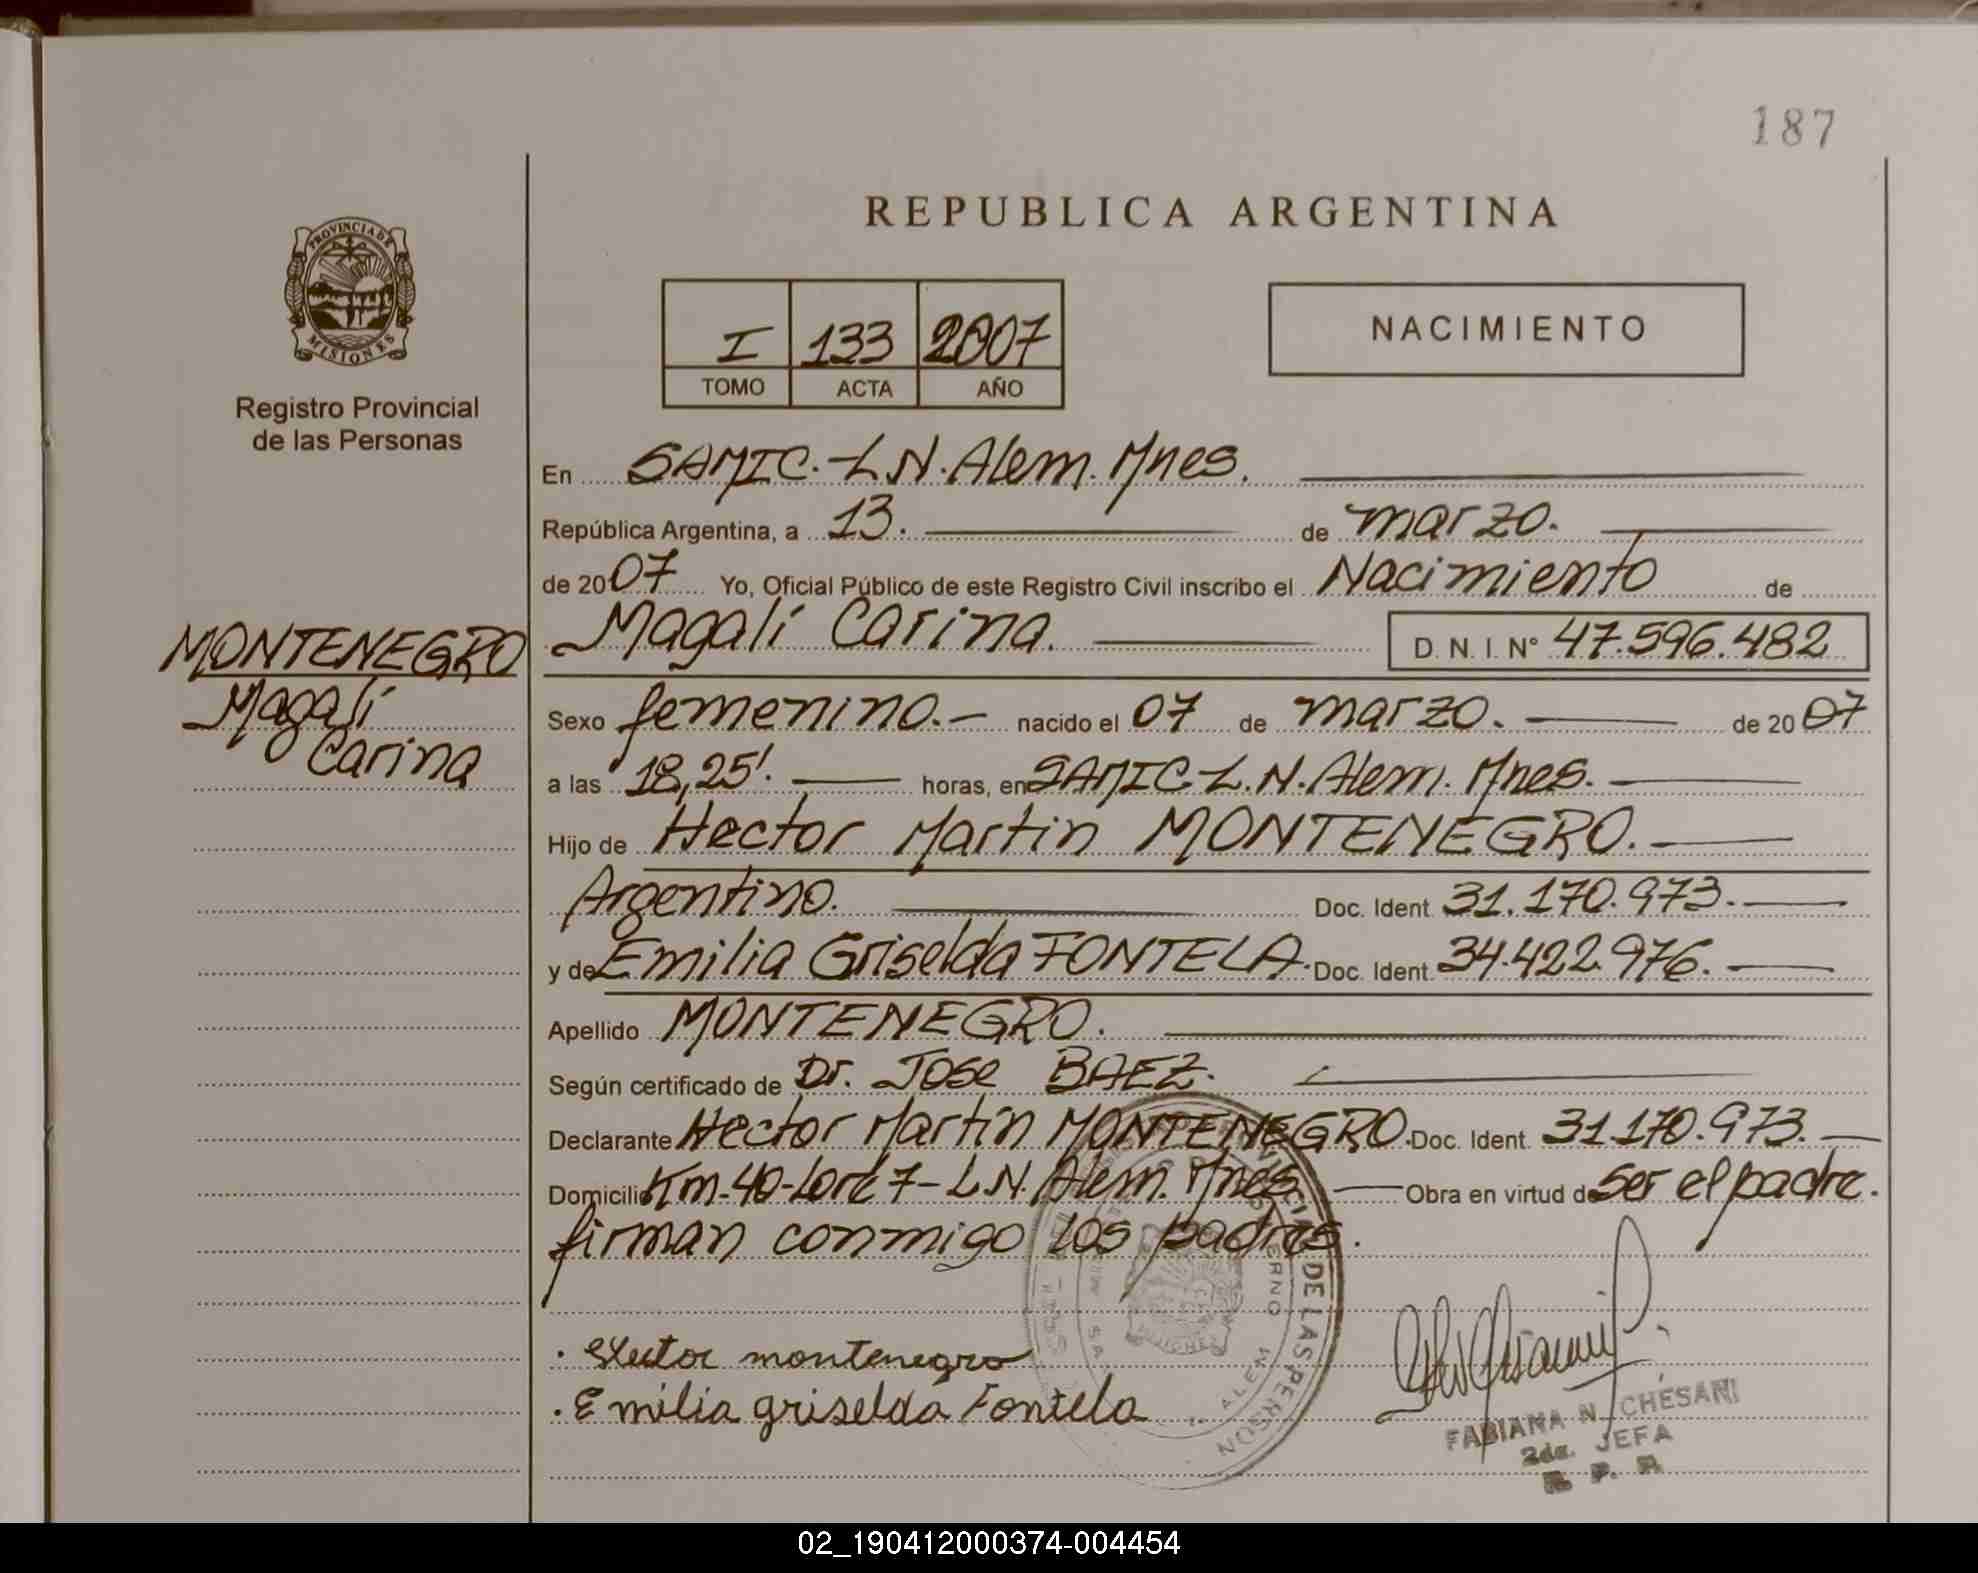 187
REPUBLICA ARGENTINA
PROVINCIA DE
MISIONES
Registro Provincial
de las Personas
I 133 2007
TOMO ACTA AÑO
NACIMIENTO
En SAMIC.-L.N.Alem.Mnes.
República Argentina, a 13. de marzo.
de 2007 Yo, Oficial Público de este Registro Civil inscribo el Nacimiento de
MONTENEGRO
Magalí
Carina
Magalí Carina. D. N. I. Nº 47.596.482
Sexo femenino.- nacido el 07 de marzo. de 2007
a las 18,25'. horas, en SAMIC-L.N.Alem.Mnes.
Hijo de Hector Martin MONTENEGRO.
Argentino. Doc. Ident. 31.170.973.
y de Emilia Griselda FONTELA. Doc. Ident. 34.422.976.
Apellido MONTENEGRO.
Según certificado de Dr. Jose BAEZ.
Declarante Hector Martin MONTENEGRO. Doc. Ident. 31.170.973.
Domicilio Km-40-Lote 7-L.N.Alem.Mnes. Obra en virtud de ser el padre.
firman conmigo los padres.
montenegro
Emilia griselda Fontela
DE LAS PERSON
ALEM
FABIANA N. CHESANI
2da. JEFA
R. P. P.
02_190412000374-004454